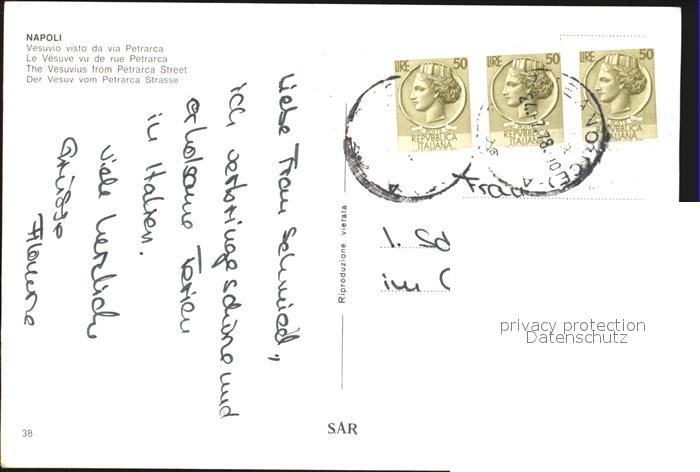 NAPOLI
Vesuvio visto da via Petrarca
Le Vésuve vu de rue Petrarca
The Vesuvius from Petrarca Street
Der Vesuv vom Petrarca Strasse
Liebe Frau Schmied,
ich verbringe schöne und
erholsame Ferien
in Italien.
Viele herzliche
Grüsse
38
Riproduzione vietata
SAR
LIRE 50
POSTE
REPVBBLICA
ITALIANA
LIRE 50
REPVBBLICA
ITALIANA
LIRE 50
REPVBBLICA
ITALIANA
Frau
I. Sc
im
privacy protection
Datenschutz